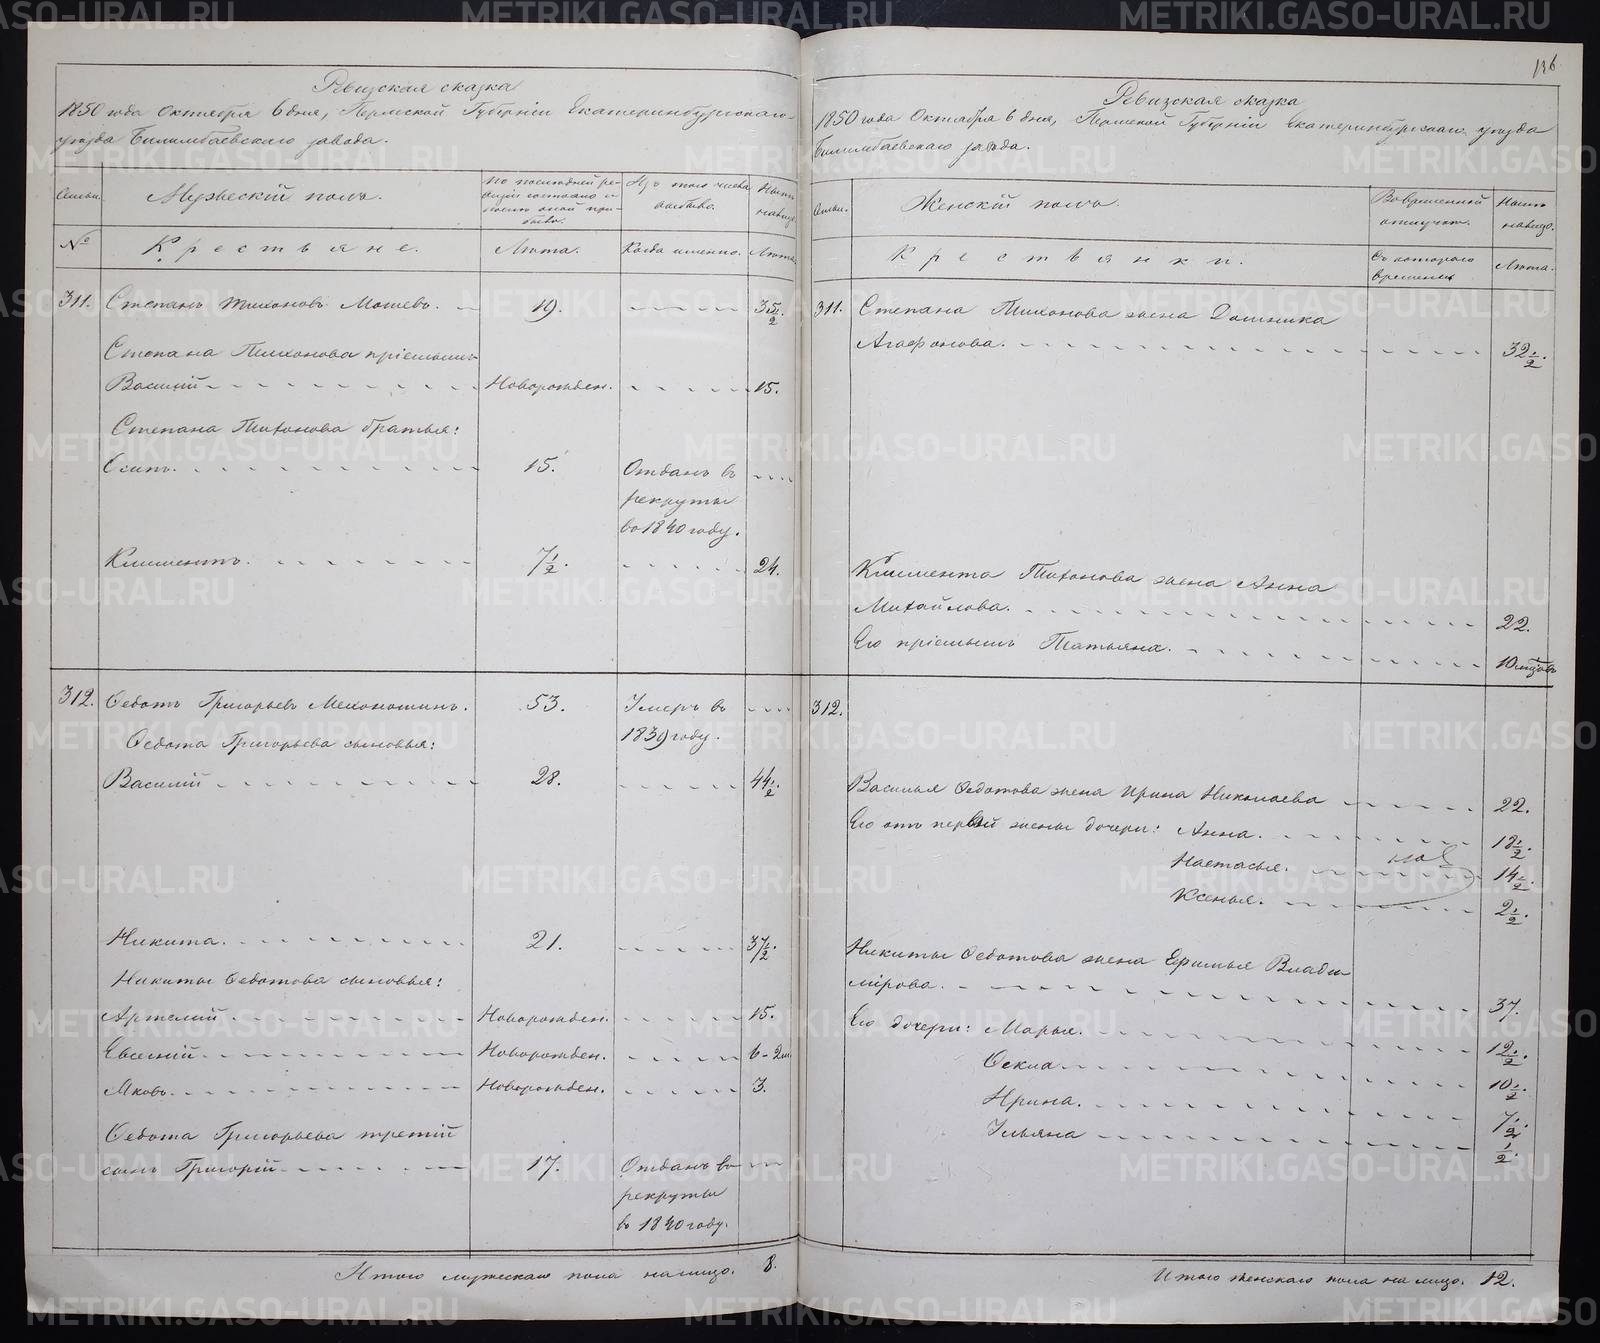 Ревизская сказка
1850 года Октября 6 дня, Пермской Губерніи Екатеринбургскаго
уезда Билимбаевскаго завода.
Семьи. Мужескій полъ. По последней ревизіи состояло и после оной прибыло. Изъ того числа выбыло. Ныне налицо.
№ Крестьяне. Лета. Когда именно. Лета.
311. Степанъ Тихоновъ Мошевъ. 19. 35 1/2.
Степана Тихонова пріемышъ
Василій Новорожден. 15.
Степана Тихонова братья:
Осипъ. 15. Отданъ въ
рекруты
въ 1840 году.
Климентъ. 7 1/2. 24.
312. Ѳедотъ Григорьевъ Мехоношинъ. 53. Умеръ въ
1839 году.
Ѳедота Григорьева сыновья:
Василій 28. 44 1/2.
Никита. 21. 37 1/2.
Никиты Ѳедотова сыновья:
Артемій Новорожден. 15.
Евсевій Новорожден. 6
Яковъ. Новорожден. 3.
Ѳедота Григорьева третій
сынъ Григорій 17. Отданъ въ
рекруты
въ 1840 году.
Итого мужескаго пола налицо. 8.
136
Ревизская сказка
1850 года Октября 6 дня, Пермской Губерніи Екатеринбургскаго уезда
Билимбаевскаго завода.
Семьи. Женскій полъ. Во временной отлучке. Ныне налицо.
Крестьянки. Съ котораго времени. Лета.
311. Степана Тихонова жена Домника
Агафонова. 32 1/2.
Климента Тихонова жена Анна
Михайлова. 22.
Его пріемышъ Татьяна. 10 мѣсцовъ
312.
Василья Ѳедотова жена Ирина Николаева 22.
Его отъ первой жены дочери: Анна. 18 1/2.
Настасья. 14 1/2.
Ксенья. 2 1/2.
Никиты Ѳедотова жена Ефимья Влади-
мірова. 37.
Его дочери: Марья. 12 1/2.
Ѳекла 10 1/2.
Ирина. 7 1/2.
Ульяна 1/2.
Итого женскаго пола на лицо. 12.
METRIKI.GASO-URAL.RU